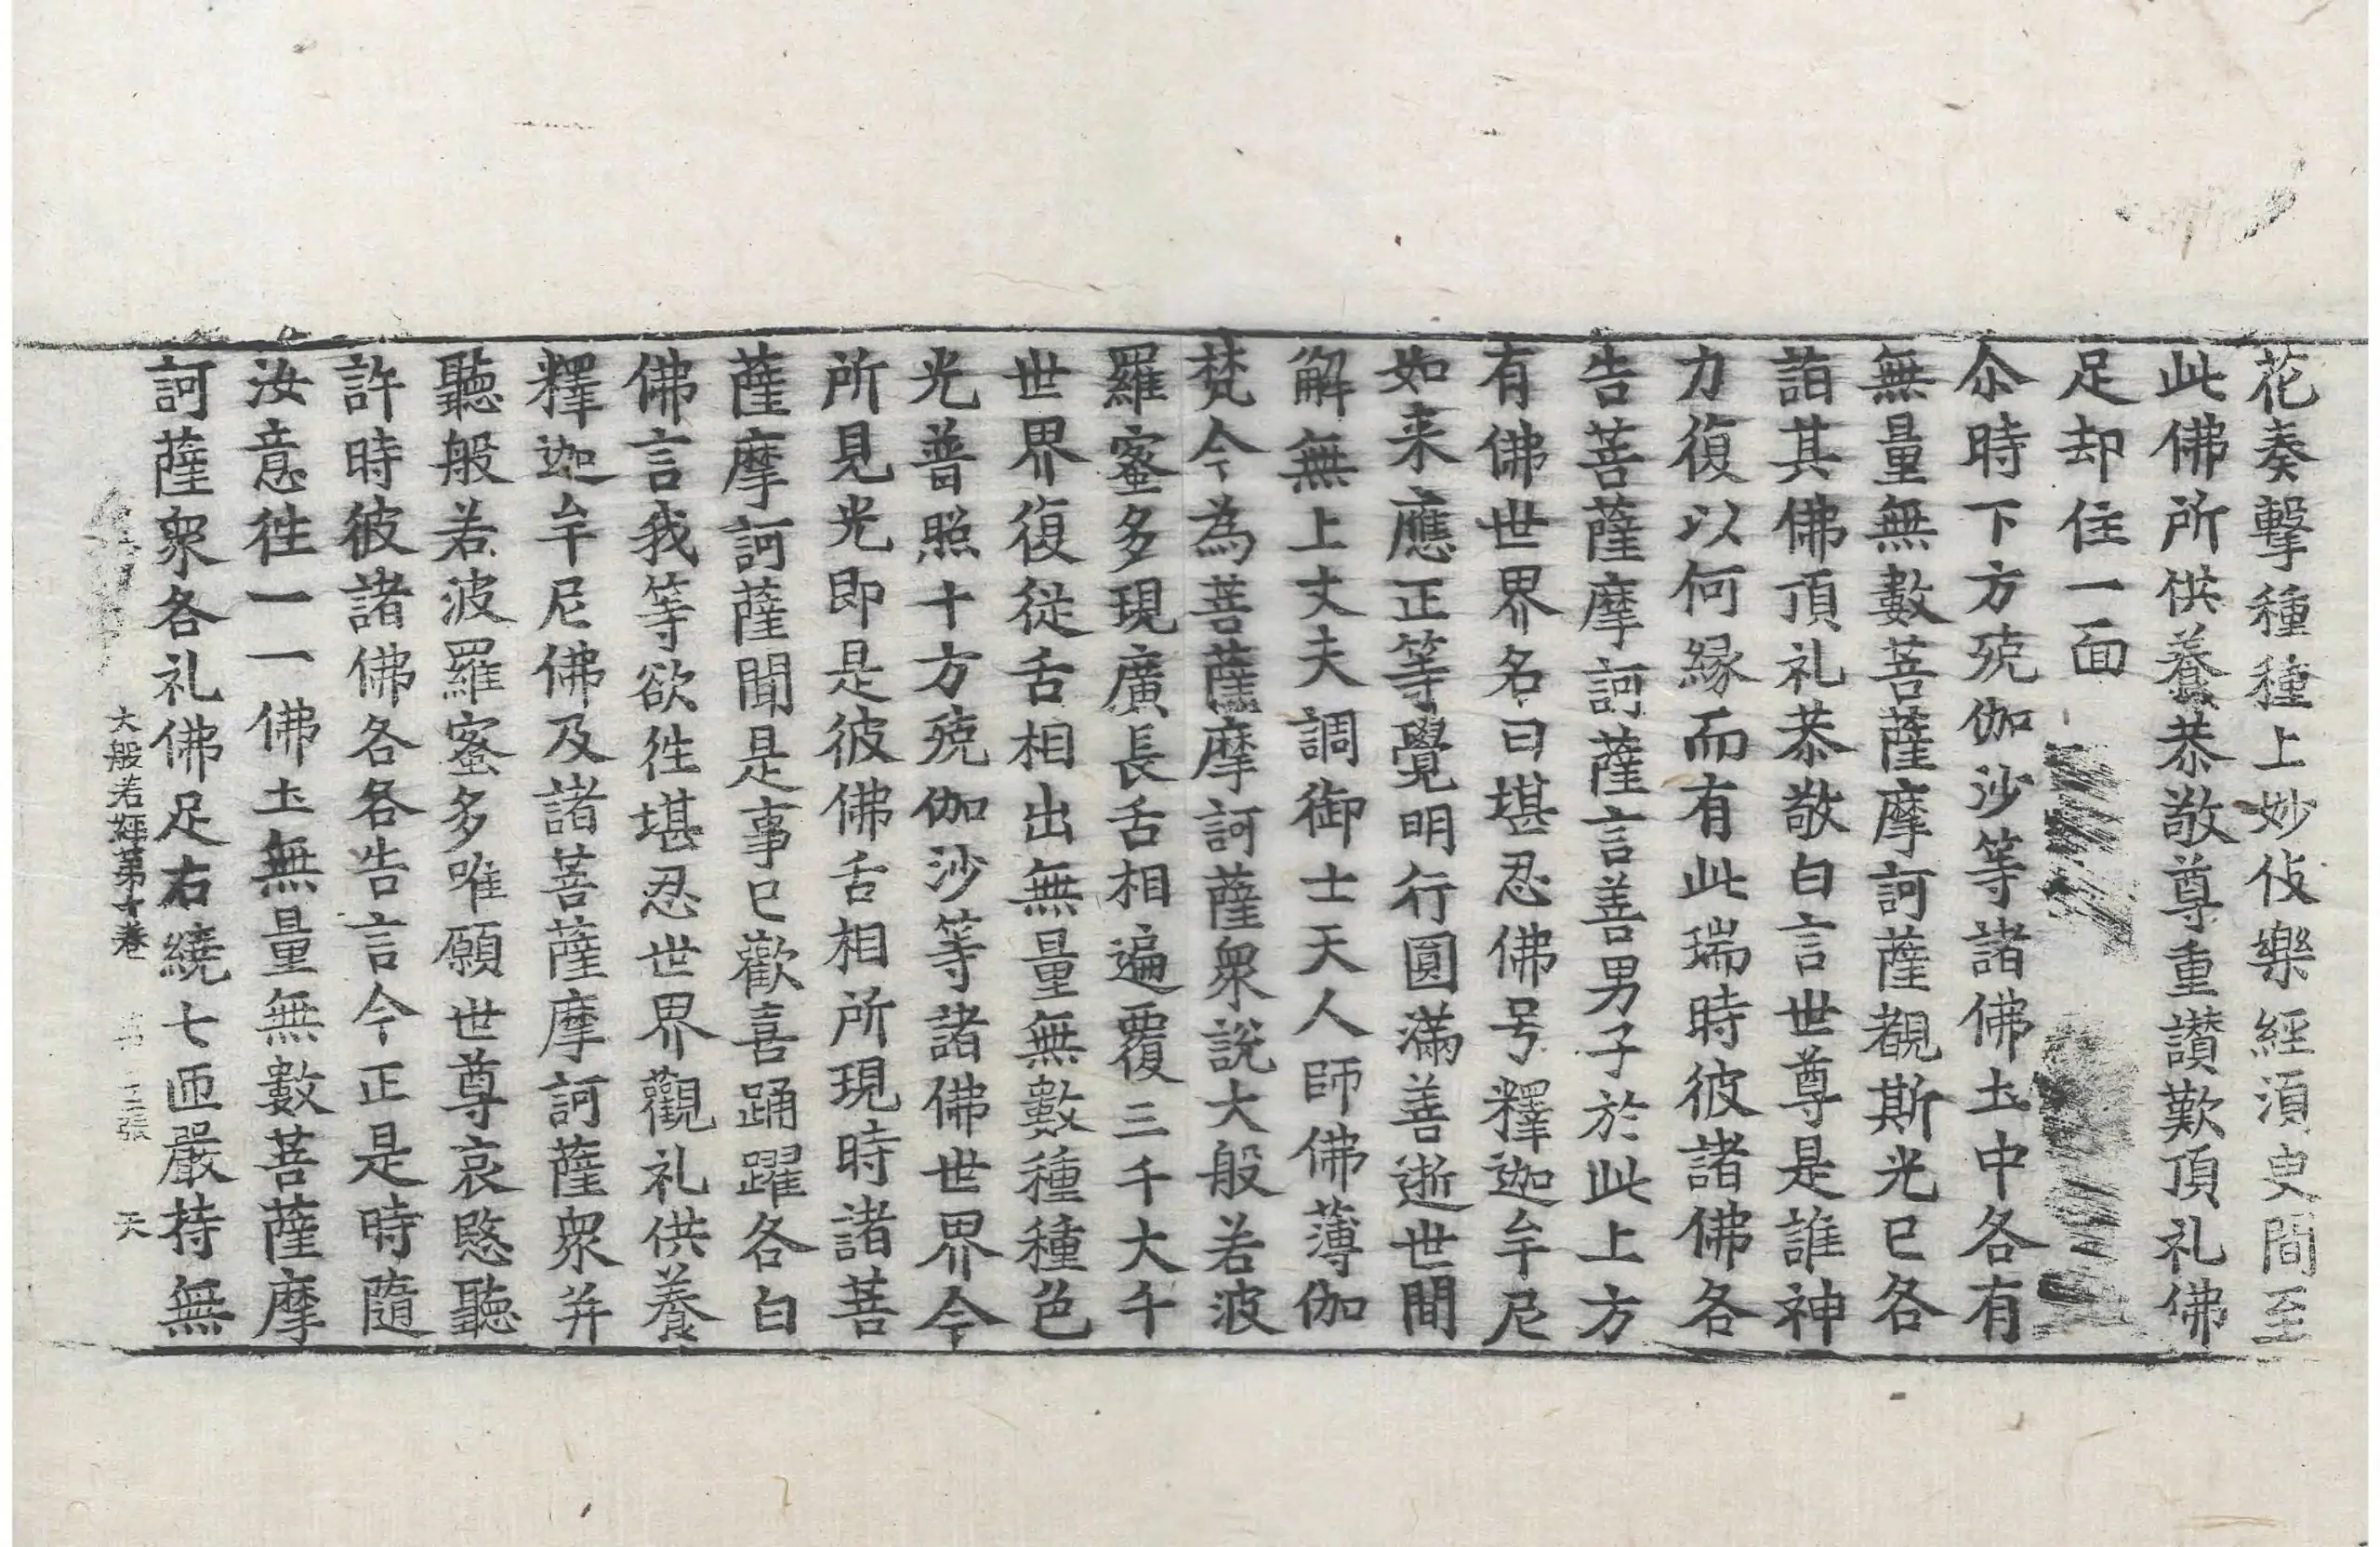 花奏擊種種上妙伎樂經須臾間至
此佛所供養恭敬尊重讃歎頂礼佛
足却住一面
尒時下方殑伽沙等諸佛土中各有
無量無數菩薩摩訶薩覩斯光已各
詣其佛頂礼恭敬白言世尊是誰神
力復以何緣而有此瑞時彼諸佛各
告菩薩摩訶薩言善男子於此上方
有佛世界名曰堪忍佛号釋迦牟尼
如来應正等覺明行圓滿善逝世間
解無上丈夫調御士天人師佛薄伽
梵今為菩薩摩訶薩衆說大般若波
羅蜜多現廣長舌相遍覆三千大千
世界復從舌相出無量無數種種色
光普照十方殑伽沙等諸佛世界今
所見光即是彼佛舌相所現時諸菩
薩摩訶薩聞是事已歡喜踊躍各白
佛言我等欲往堪忍世界觀礼供養
釋迦牟尼佛及諸菩薩摩訶薩衆并
聽般若波羅蜜多唯願世尊哀愍聽
許時彼諸佛各各告言今正是時隨
汝意往一一佛土無量無數菩薩摩
訶薩衆各礼佛足右繞七匝嚴持無
大般若經第十卷 張 天